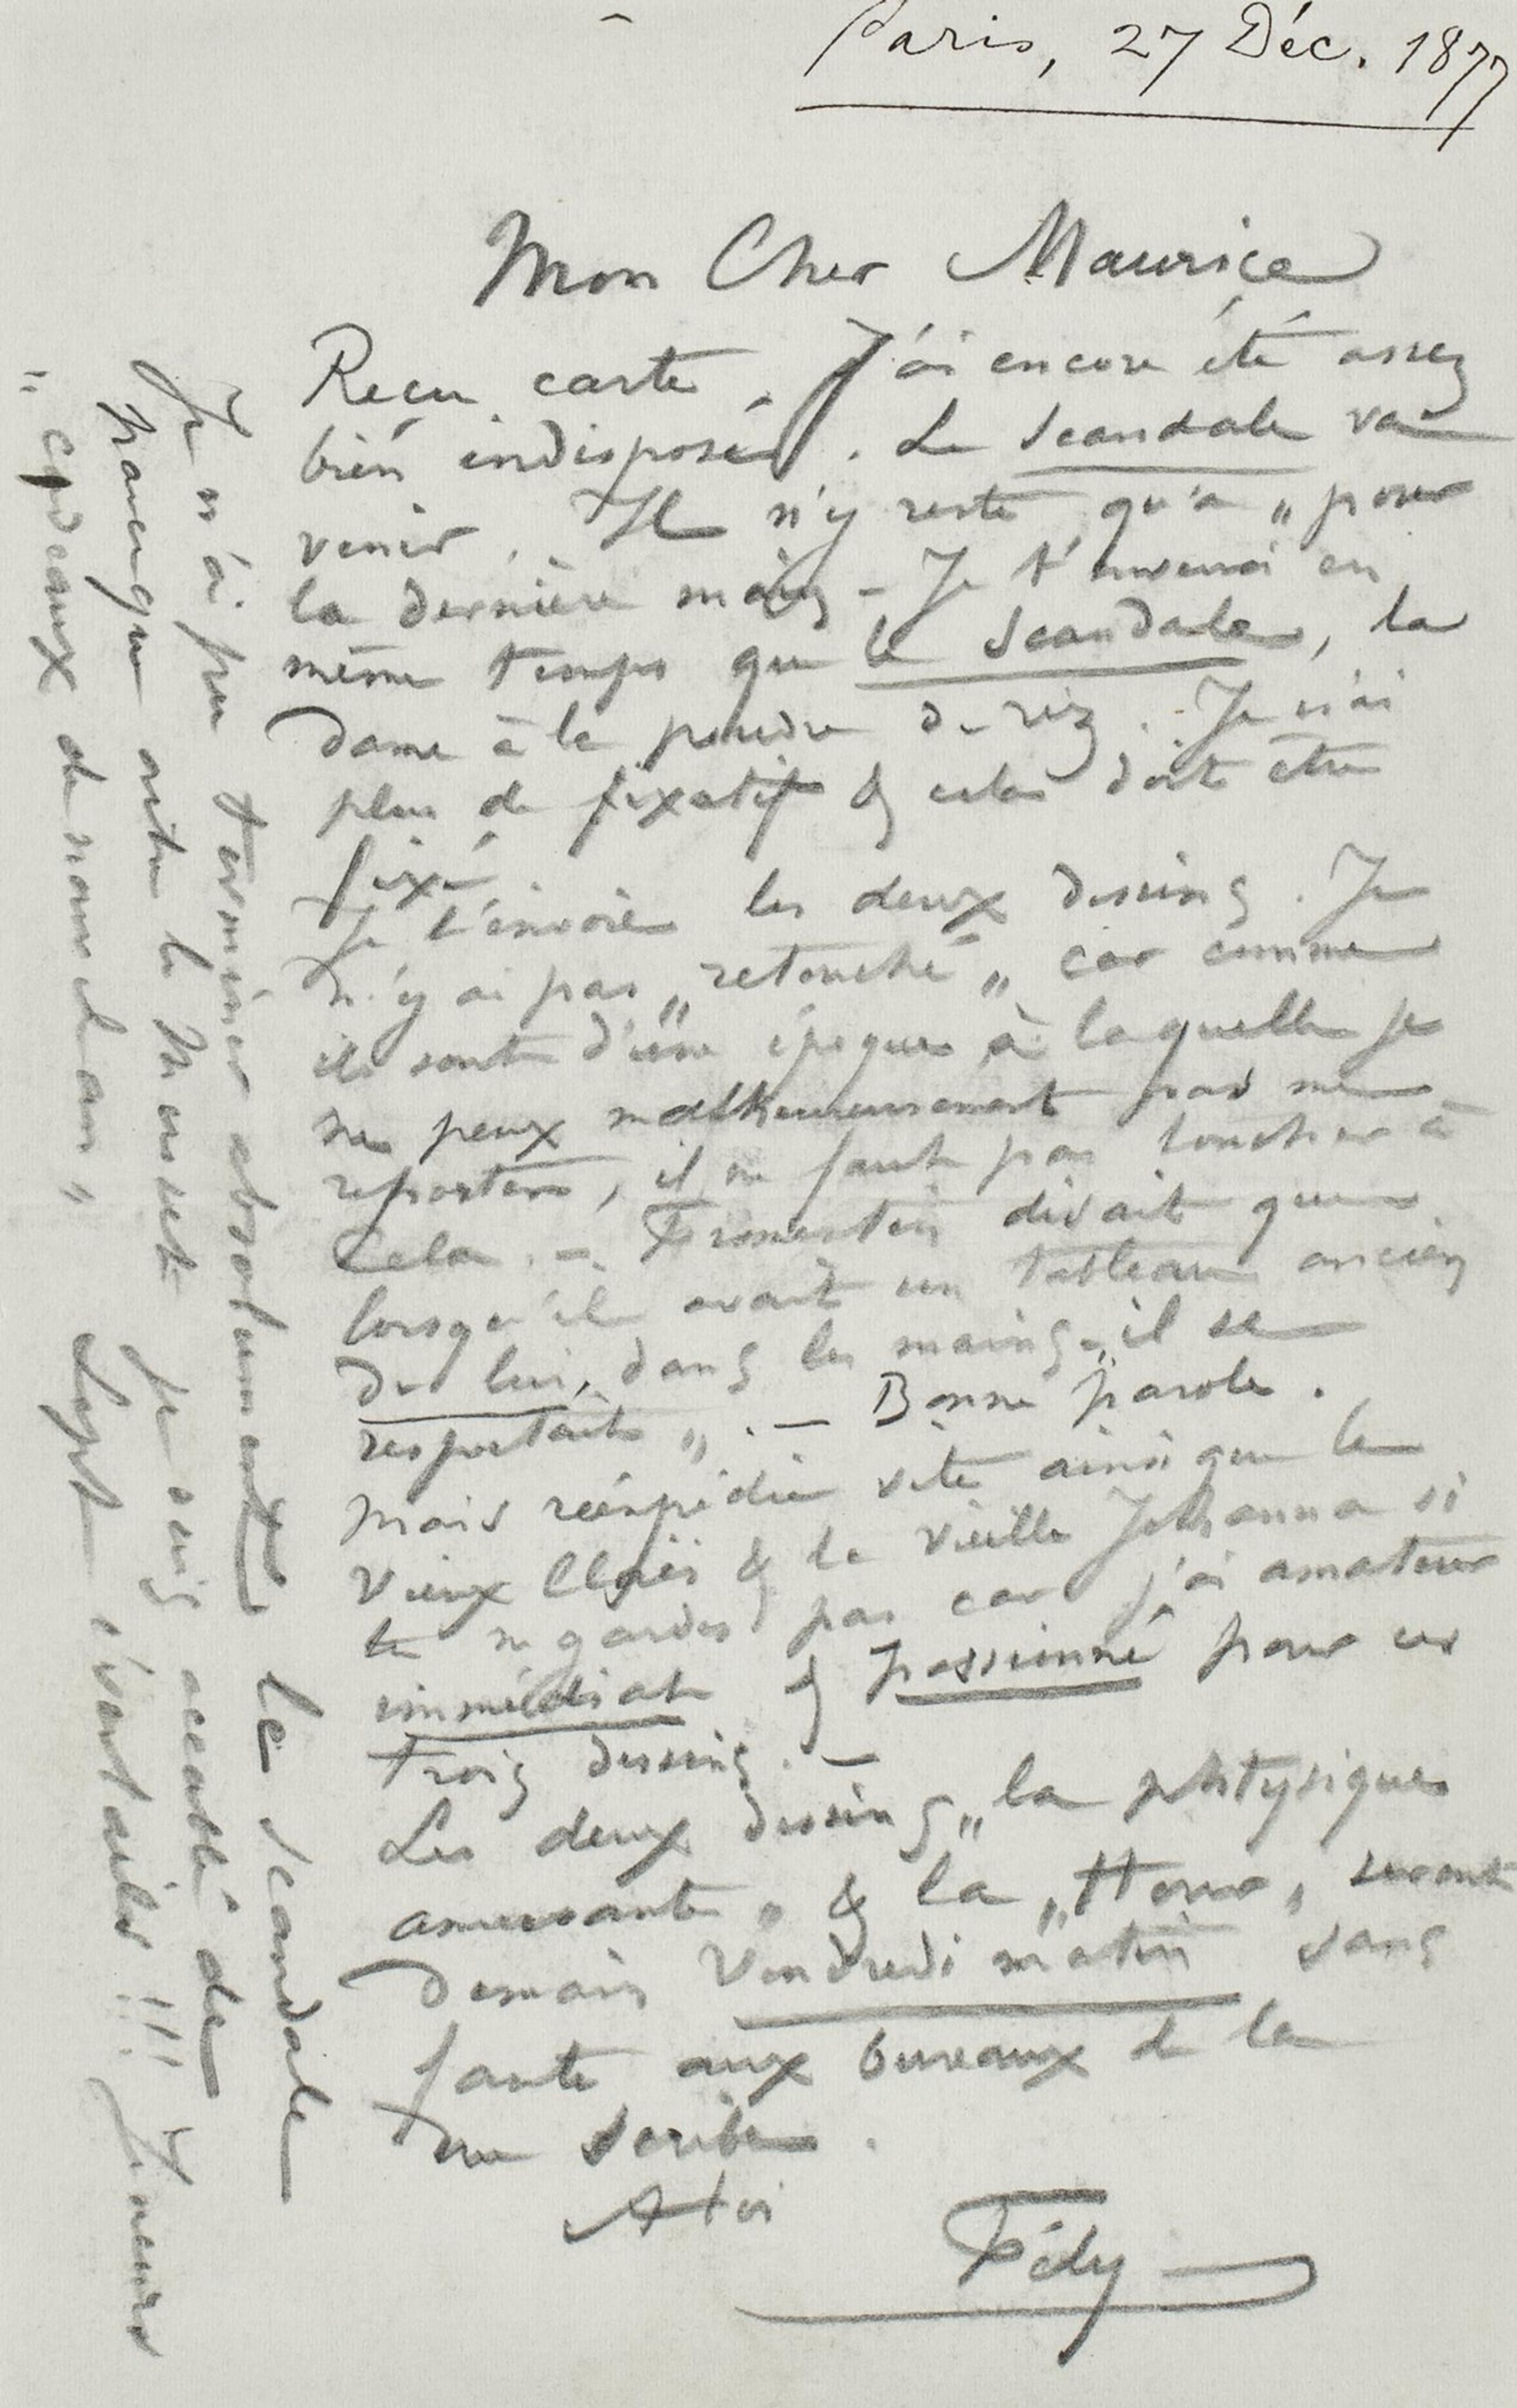 Paris, 27 Déc. 1877
Mon Cher Maurice
Reçu carte. J'ai encore été assez
bien indisposé. Le Scandale va
venir. Il n'y reste qu'a „poser
la dernière main – Je t'enverrai en
même temps que le Scandale, la
Dame à la poudre de riz. Je n'ai
plus de fixatif & cela doit être
fixé.
Je t'envoie les deux dessins. Je
n'y ai pas „retouché„ car comme
ils sont d'une époque à laquelle je
ne peux malheureusement pas me
reporter, il ne faut pas toucher à
Cela. – Fromentin disait que
lorsqu'il avait un tableau ancien
de lui, dans les mains – „il se
respectait„. – Bonne parole.
Mais réexpédie vite ainsi que le
vieux & la vieille Johanna si
tu ne gardes pas car j'ai amateur
immédiat & passionné pour ces
trois dessins. –
Les deux dessins „la phtysique
amusante„ & la „ seront
demain Vendredi matin sans
faute aux bureaux de la
rue Scribe.
A toi
Fély
Je n'ai pu terminer absolument le Scandale
parcequ'en ce moment je suis accablé de
„cadeaux de nouvel an„ Sept éventails !!! J'meurs